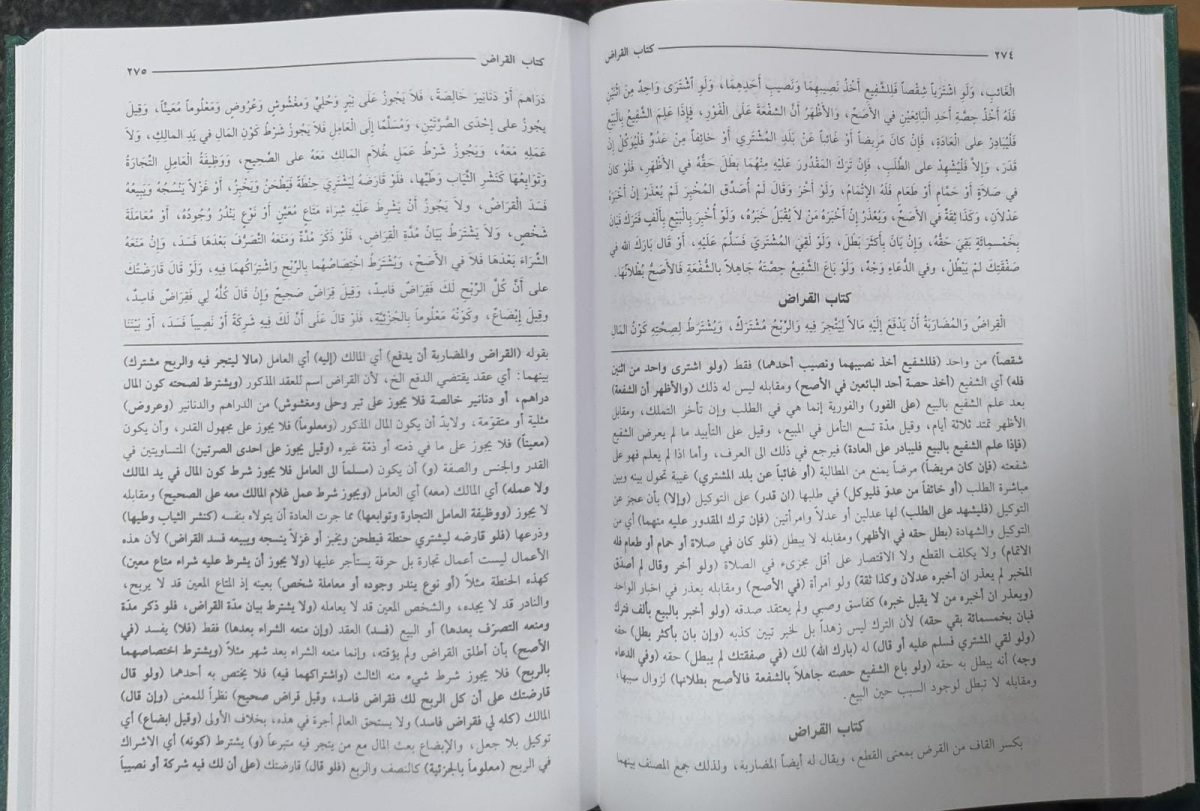 ٢٧٤ كتاب القراض
الْغَائِبِ، وَلَو اشْتَرَيَا شِقْصاً فَلِلشَّفِيعِ أَخْذُ نَصِيبِهِمَا وَنَصِيبِ أَحَدِهِمَا، وَلَوِ اشْتَرَى وَاحِدٌ مِنَ اثْنَيْنِ
فَلَهُ أَخْذُ حِصَّةِ أَحَدِ الْبَائِعَيْنِ في الأصَحِّ، وَالأظْهَرُ أَنَّ الشُّفْعَةَ عَلَى الْفَوْرِ، فَإِذَا عَلِمَ الشَّفِيعُ بِالْبَيْعِ
فَلْيُبَادِرْ عَلَى الْعَادَةِ، فَإِنْ كَانَ مَرِيضاً أَوْ غَائِباً عَنْ بَلَدِ المُشْتَرِي أَوْ خَائِفاً مِنْ عَدُوٍّ فَلْيُوَكِّلْ إِنْ
قَدَرَ، وَإِلاَّ فَلْيُشْهِدْ عَلَى الطَّلَبِ، فَإِنْ تَرَكَ المَقْدُورَ عَلَيْهِ مِنْهُمَا بَطَلَ حَقُّهُ في الأظْهَرِ، فَلَوْ كَانَ
في صَلاَةٍ أَوْ حَمَّامٍ أَوْ طَعَامٍ فَلَهُ الإِتْمَامُ، وَلَوْ أَخَّرَ وَقَالَ لَمْ أُصَدِّقِ المُخْبِرَ لَمْ يُعْذَرْ إِنْ أَخْبَرَهُ
عَدْلاَنِ، وَكَذَا ثِقَةٌ في الأصَحِّ، وَيُعْذَرُ إِنْ أَخْبَرَهُ مَنْ لاَ يُقْبَلُ خَبَرُهُ، وَلَوْ أُخْبِرَ بِالْبَيْعِ بِأَلْفٍ فَتَرَكَ فَبَانَ
بِخَمْسِمِائَةٍ بَقِيَ حَقُّهُ، وَإِنْ بَانَ بِأَكْثَرَ بَطَلَ، وَلَوْ لَقِيَ المُشْتَرِيَ فَسَلَّمَ عَلَيْهِ، أَوْ قَال بَارَكَ الله في
صَفْقَتِكَ لَمْ يَبْطُلْ، وفي الدُّعَاءِ وَجْهٌ، وَلَوْ بَاعَ الشَّفِيعُ حِصَّتَهُ جَاهِلاً بِالشُّفْعَةِ فَالأصَحُّ بُطْلاَنُهَا.
كتاب القراض
الْقِرَاضُ وَالمُضَارَبَةُ أَنْ يَدْفَعَ إِلَيْهِ مَالاً لِيَتَّجِرَ فِيهِ وَالرِّبْحُ مُشْتَرَكٌ، وَيُشْتَرَطُ لِصِحَّتِهِ كَوْنُ المَالِ
شقصاً) من واحد (فللشفيع أخذ نصيبهما ونصيب أحدهما) فقط (ولو اشترى واحد من اثنين
فله) أي الشفيع (أخذ حصة أحد البائعين في الأصح) ومقابله ليس له ذلك (والأظهر أن الشفعة)
بعد علم الشفيع بالبيع (على الفور) والفورية إنما هي في الطلب وإن تأخر التملك، ومقابل
الأظهر تمتد ثلاثة أيام، وقيل مدّة تسع التأمل في المبيع، وقيل على التأبيد ما لم يعرض الشفيع
(فإذا علم الشفيع بالبيع فليبادر على العادة) فيرجع في ذلك الى العرف، وأما اذا لم يعلم فهو على
شفعته (فإن كان مريضاً) مرضاً يمنع من المطالبة (أو غائباً عن بلد المشتري) غيبة تحول بينه وبين
مباشرة الطلب (أو خائفاً من عدوّ فليوكل) في طلبها (ان قدر) على التوكيل (وإلا) بأن عجز عن
التوكيل (فليشهد على الطلب) لها عدلين أو عدلاً وامرأتين (فإن ترك المقدور عليه منهما) أي من
التوكيل والشهادة (بطل حقه في الأظهر) ومقابله لا يبطل (فلو كان في صلاة أو حمام أو طعام فله
الاتمام) ولا يكلف القطع ولا الاقتصار على أقل مجزىء في الصلاة (ولو أخر وقال لم أصدّق
المخبر لم يعذر ان أخبره عدلان وكذا ثقة) ولو امرأة (في الأصح) ومقابله يعذر في اخبار الواحد
(ويعذر ان أخبره من لا يقبل خبره) كفاسق وصبي ولم يعتقد صدقه (ولو أخبر بالبيع بألف فترك
فبان بخمسمائة بقي حقه) لأن الترك ليس زهداً بل لخبر تبين كذبه (وإن بان بأكثر بطل) حقه
(ولو لقي المشتري فسلم عليه أو قال) له (بارك الله) لك (في صفقتك لم يبطل) حقه (وفي الدعاء
وجه) أنه يبطل به حقه (ولو باع الشفيع حصته جاهلاً بالشفعة فالأصح بطلانها) لزوال سببها،
ومقابله لا تبطل لوجود السبب حين البيع.
كتاب القراض
بكسر القاف من القرض بمعنى القطع، ويقال له أيضاً المضاربة، ولذلك جمع المصنف بينهما
كتاب القراض ٢٧٥
دَرَاهِمَ أَوْ دَنَانِيرَ خَالِصَةً، فَلاَ يَجُوزُ عَلَى تِبْرٍ وَحُلِيٍّ وَمَغْشُوشٍ وَعُرُوضٍ وَمَعْلُوماً مُعَيَّناً، وَقِيلَ
يَجُوزُ على إِحْدَى الصُّرَّتَيْنِ، وَمُسَلَّمًا إِلَى الْعَامِلِ فَلاَ يَجُوزُ شَرْطُ كَوْنِ المَالِ في يَدِ المَالِكِ، وَلاَ
عَمَلِهِ مَعَهُ، وَيَجُوزُ شَرْطُ عَمَلِ غُلاَمِ المَالِكِ مَعَهُ عَلَى الصَّحِيحِ، وَوَظِيفَةُ الْعَامِلِ التِّجَارَةُ
وَتَوَابِعُهَا كَنَشْرِ الثِّيَابِ وَطَيِّهَا، فَلَوْ قَارَضَهُ لِيَشْتَرِيَ حِنْطَةً فَيَطْحَنَ وَيَخْبِزَ، أَوْ غَزْلاً يَنْسُجُهُ وَيَبِيعُهُ
فَسَدَ الْقِرَاضُ، ولاَ يَجُوزُ أَنْ يَشْرِطَ عَلَيْهِ شِرَاءَ مَتَاعٍ مُعَيَّنٍ أَوْ نَوْعٍ يَنْدُرُ وُجُودُهُ، أَوْ مُعَامَلَةَ
شَخْصٍ، وَلاَ يَشْتَرِطُ بَيَانُ مُدَّةِ الْقِرَاضِ، فَلَوْ ذَكَرَ مُدَّةً وَمَنَعَهُ التَّصَرُّفَ بَعْدَهَا فَسَدَ، وَإِنْ مَنَعَهُ
الشِّرَاءَ بَعْدَهَا فَلاَ في الأصَحِّ، وَيُشْتَرَطُ اخْتِصَاصُهُما بِالرِّبْحِ وَاشْتِرَاكُهُمَا فِيهِ، وَلَوْ قَالَ قَارَضْتُكَ
على أَنَّ كُلَّ الرِّبْحِ لَكَ فَقِرَاضٌ فَاسِدٌ، وَقِيلَ قِرَاضٌ صَحِيحٌ وَإِنْ قَالَ كُلُّهُ لي فَقِرَاضٌ فَاسِدٌ،
وَقِيلَ إِبْضَاعٌ، وَكَوْنُهُ مَعْلُوماً بِالجُزْئِيَّةِ، فَلَوْ قَالَ عَلَى أَنَّ لَكَ فِيهِ شَرِكَةً أَوْ نَصِيباً فَسَدَ، أَوْ بَيْنَنَا
بقوله (القراض والمضاربة أن يدفع) أي المالك (إليه) أي العامل (مالا ليتجر فيه والربح مشترك)
بينهما: أي عقد يقتضي الدفع الخ، لأن القراض اسم للعقد المذكور (ويشترط لصحته كون المال
دراهم، أو دنانير خالصة فلا يجوز على تبر وحلى ومغشوش) من الدراهم والدنانير (وعروض)
مثلية أو متقوّمة، ولابدّ أن يكون المال المذكور (ومعلوماً) فلا يجوز على مجهول القدر، وأن يكون
(معيناً) فلا يجوز على ما في ذمته أو ذمّة غيره (وقيل يجوز على احدى الصرتين) المتساويتين في
القدر والجنس والصفة (و) أن يكون (مسلماً الى العامل فلا يجوز شرط كون المال في يد المالك
ولا عمله) أي المالك (معه) أي العامل (ويجوز شرط عمل غلام المالك معه على الصحيح) ومقابله
لا يجوز (ووظيفة العامل التجارة وتوابعها) مما جرت العادة أن يتولاه بنفسه (كنشر الثياب وطيها)
وذرعها (فلو قارضه ليشتري حنطة فيطحن ويخبز أو غزلاً ينسجه ويبيعه فسد القراض) لأن هذه
الأعمال ليست أعمال تجارة بل حرفة يستأجر عليها (ولا يجوز أن يشترط عليه شراء متاع معين)
كهذه الحنطة مثلاً (أو نوع يندر وجوده أو معاملة شخص) بعينه إذ المتاع المعين قد لا يربح،
والنادر قد لا يجده، والشخص المعين قد لا يعامله (ولا يشترط بيان مدّة القراض، فلو ذكر مدّة
ومنعه التصرّف بعدها) أو البيع (فسد) العقد (وإن منعه الشراء بعدها) فقط (فلا) يفسد (في
الأصح) بأن أطلق القراض ولم يؤقته، وإنما منعه الشراء بعد شهر مثلاً (ويشترط اختصاصهما
بالربح) فلا يجوز شرط شيء منه الثالث (واشتراكهما فيه) فلا يختص به أحدهما (ولو قال
قارضتك على أن كل الربح لك فقراض فاسد، وقيل قراض صحيح) نظراً للمعنى (وإن قال)
المالك (كله لي فقراض فاسد) ولا يستحق العالم أجرة في هذه، بخلاف الأولى (وقيل ابضاع) أي
توكيل بلا جعل، والإبضاع بعث المال مع من يتجر فيه متبرعاً (و) يشترط (كونه) أي الاشراك
في الربح (معلوماً بالجزئية) كالنصف والربع (فلو قال) قارضتك (على أن لك فيه شركة أو نصيباً